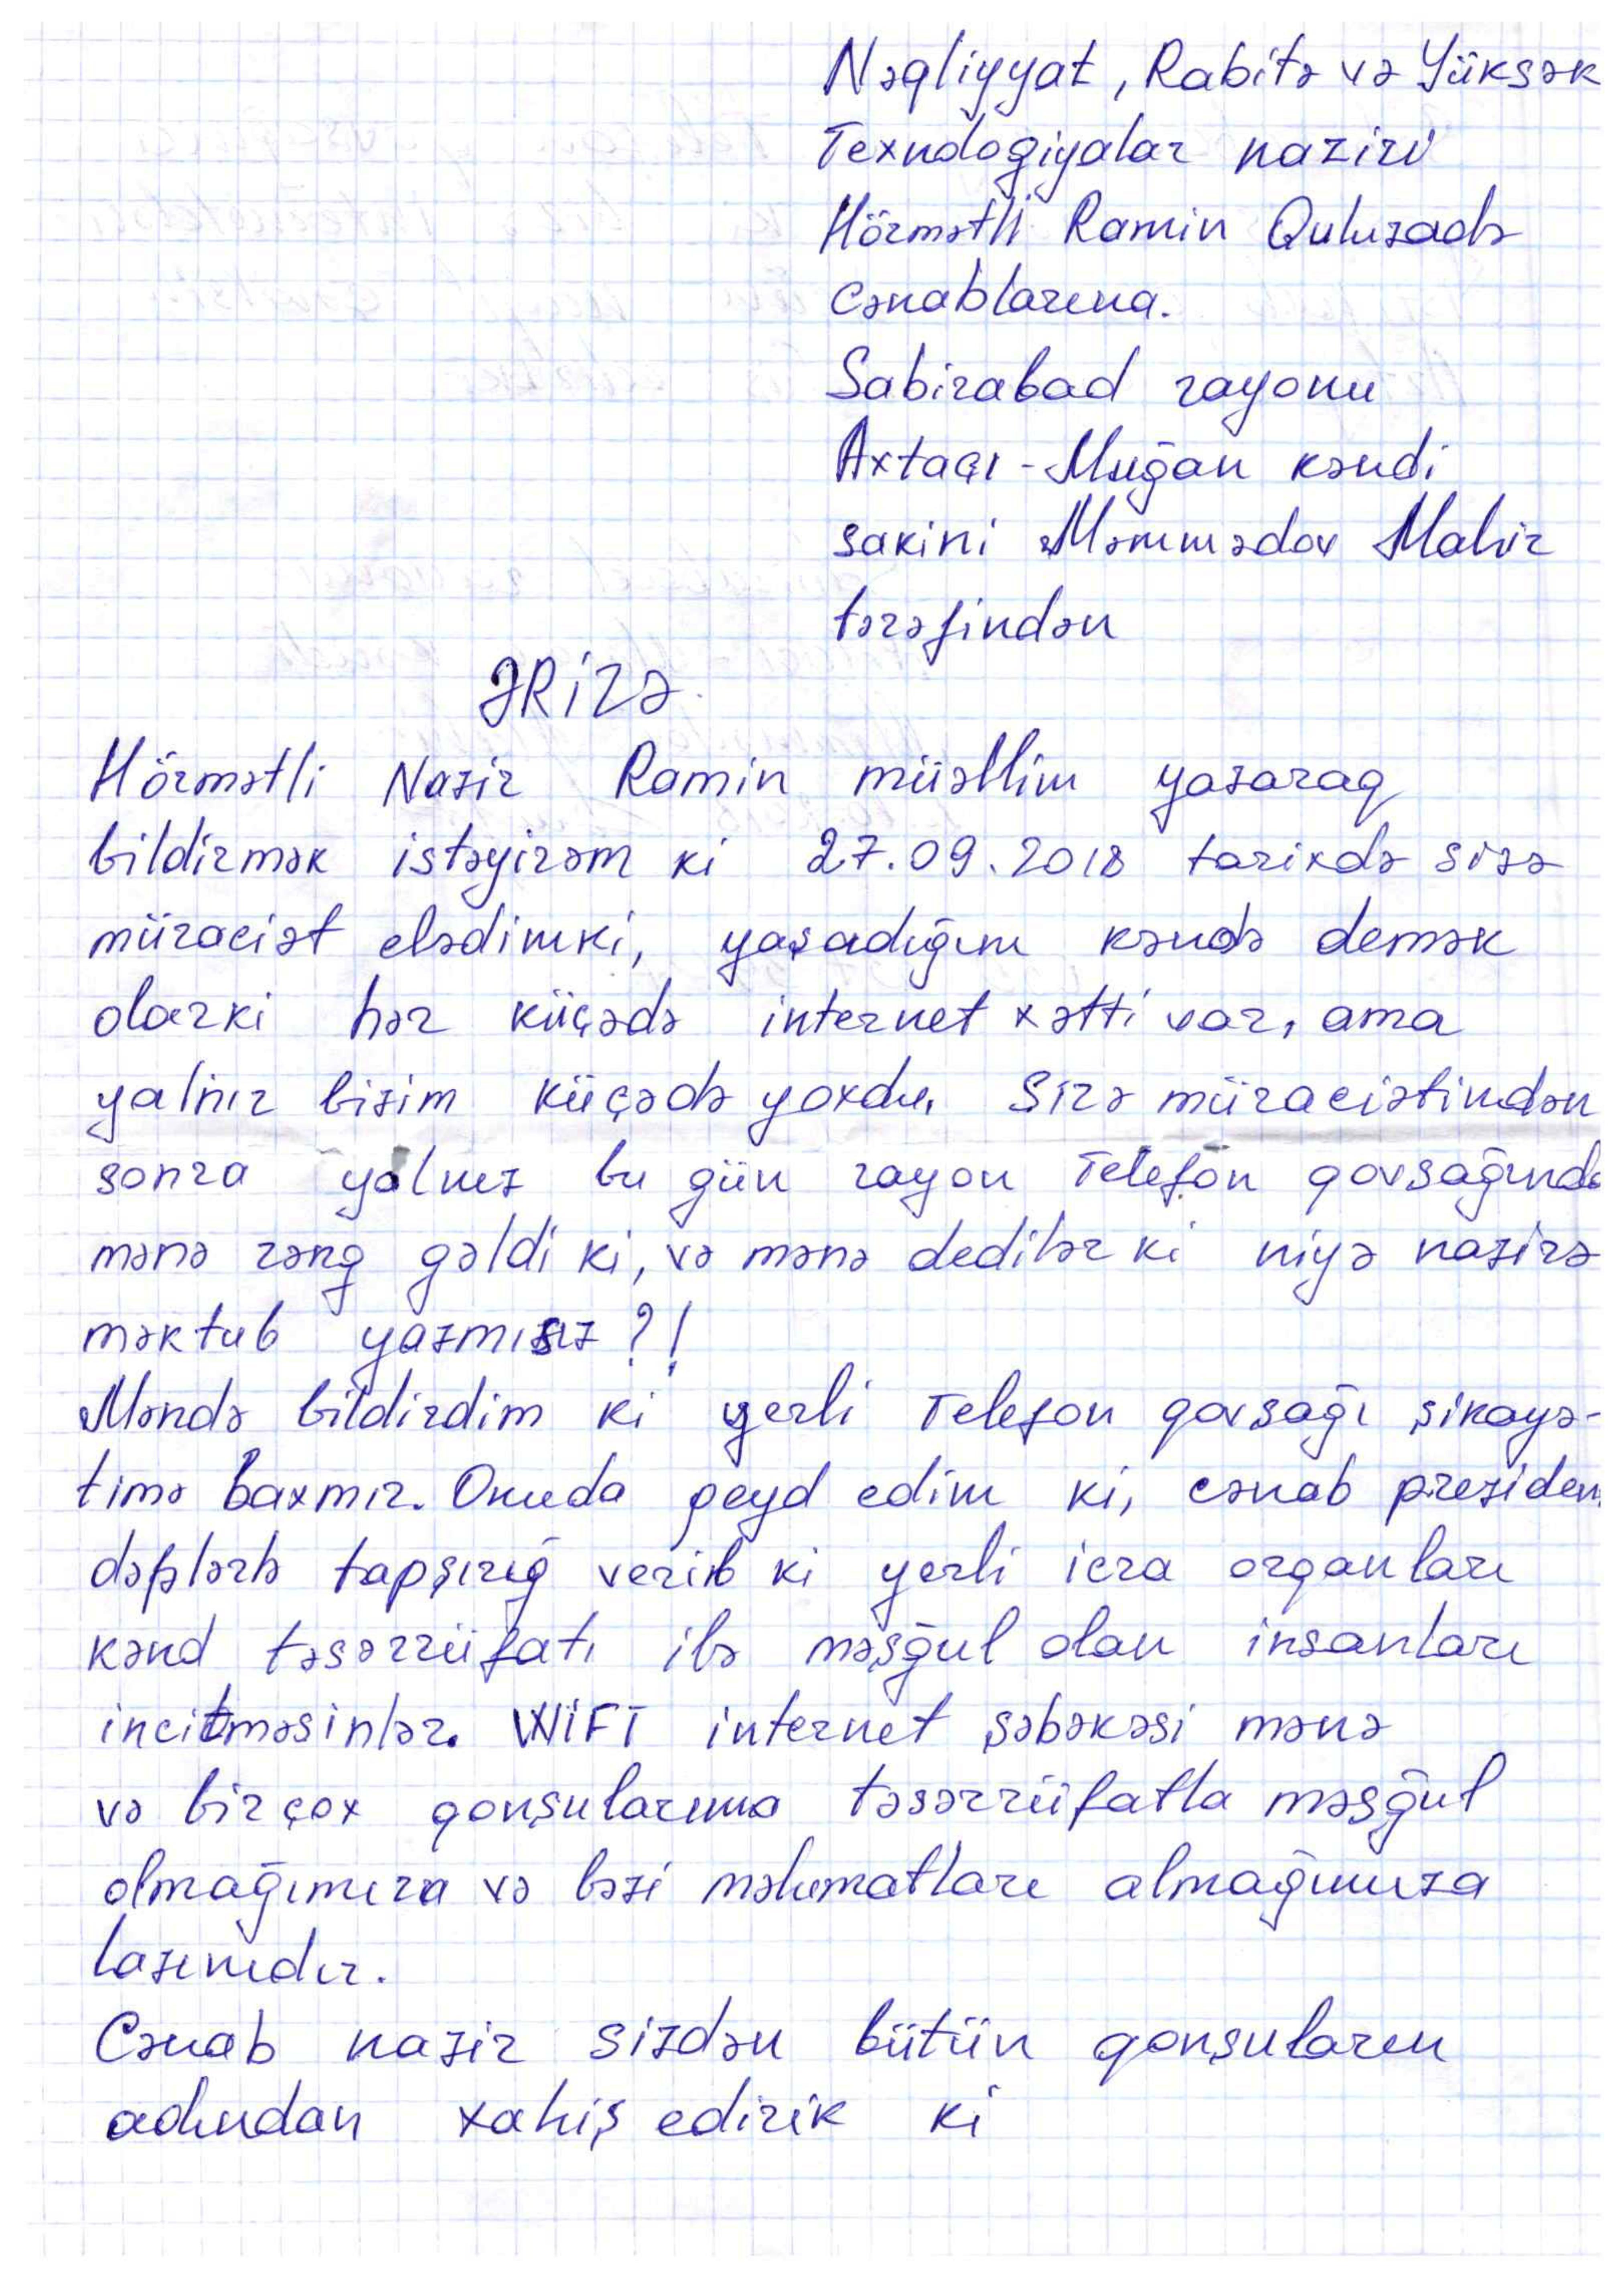 Nəqliyyat, Rabitə və Yüksək
Texnologiyalar naziri
Hörmətli Ramin Quluzadə
cənablarına.
Sabirabad rayonu
Axtaçı-Muğan kəndi
sakini Məmmədov Mahir
tərəfindən
ƏRİZƏ.
Hörmətli Nazir Ramin müəllim yazaraq
bildirmək istəyirəm ki 27.09.2018 tarixdə sizə
müraciət elədimki, yaşadığım kəndə demək
olarki hər küçədə internet xətti var, ama
yalnız bizim küçədə yoxdu. Sizə müraciətimdən
sonra yalnız bu gün rayon Telefon qovşağında
mənə zəng gəldi ki, və mənə dedilər ki niyə nazirə
məktub yazmısız?!
Məndə bildirdim ki yerli Telefon qovşağı şikayə-
timə baxmır. Onuda qeyd edim ki, cənab preziden
dəflərlə tapşırığ verib ki yerli icra orqanları
kənd təsərrüfatı ilə məşğul olan insanları
incitməsinlər. WİFİ internet şəbəkəsi mənə
və birçox qonşularıma təsərrüfatla məşğul
olmağımıza və bəzi məlumatları almağımıza
lazımdır.
Cənab nazir sizdən bütün qonşuların
adından xahiş edirik ki